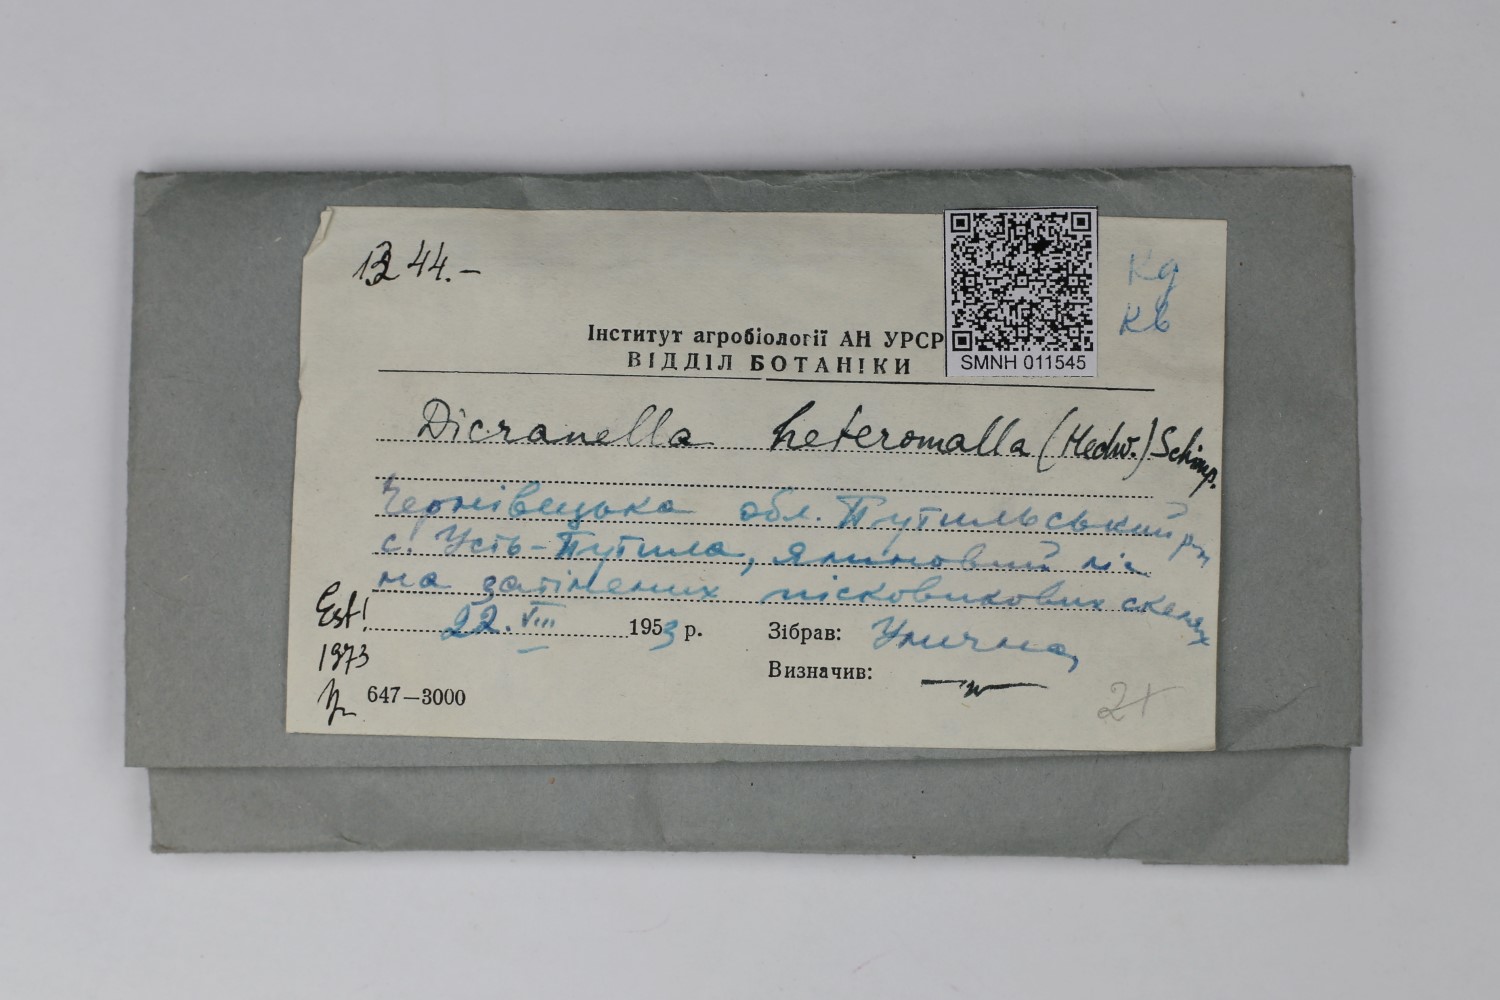 1344.–
Кд
Кв
Інститут агробіології АН УРСР
ВІДДІЛ БОТАНІКИ
SMNH 011545
Dicranella heteromalla (Hedw.) Schimp.
Чернівецька обл. Путильський р-н
с. Усть-Путила, ялиновий ліс
на затінених пісковикових скелях
Est!
22.VIII 1953 р. Зібрав: Улична
1973
Визначив: —"—
647—3000
2+